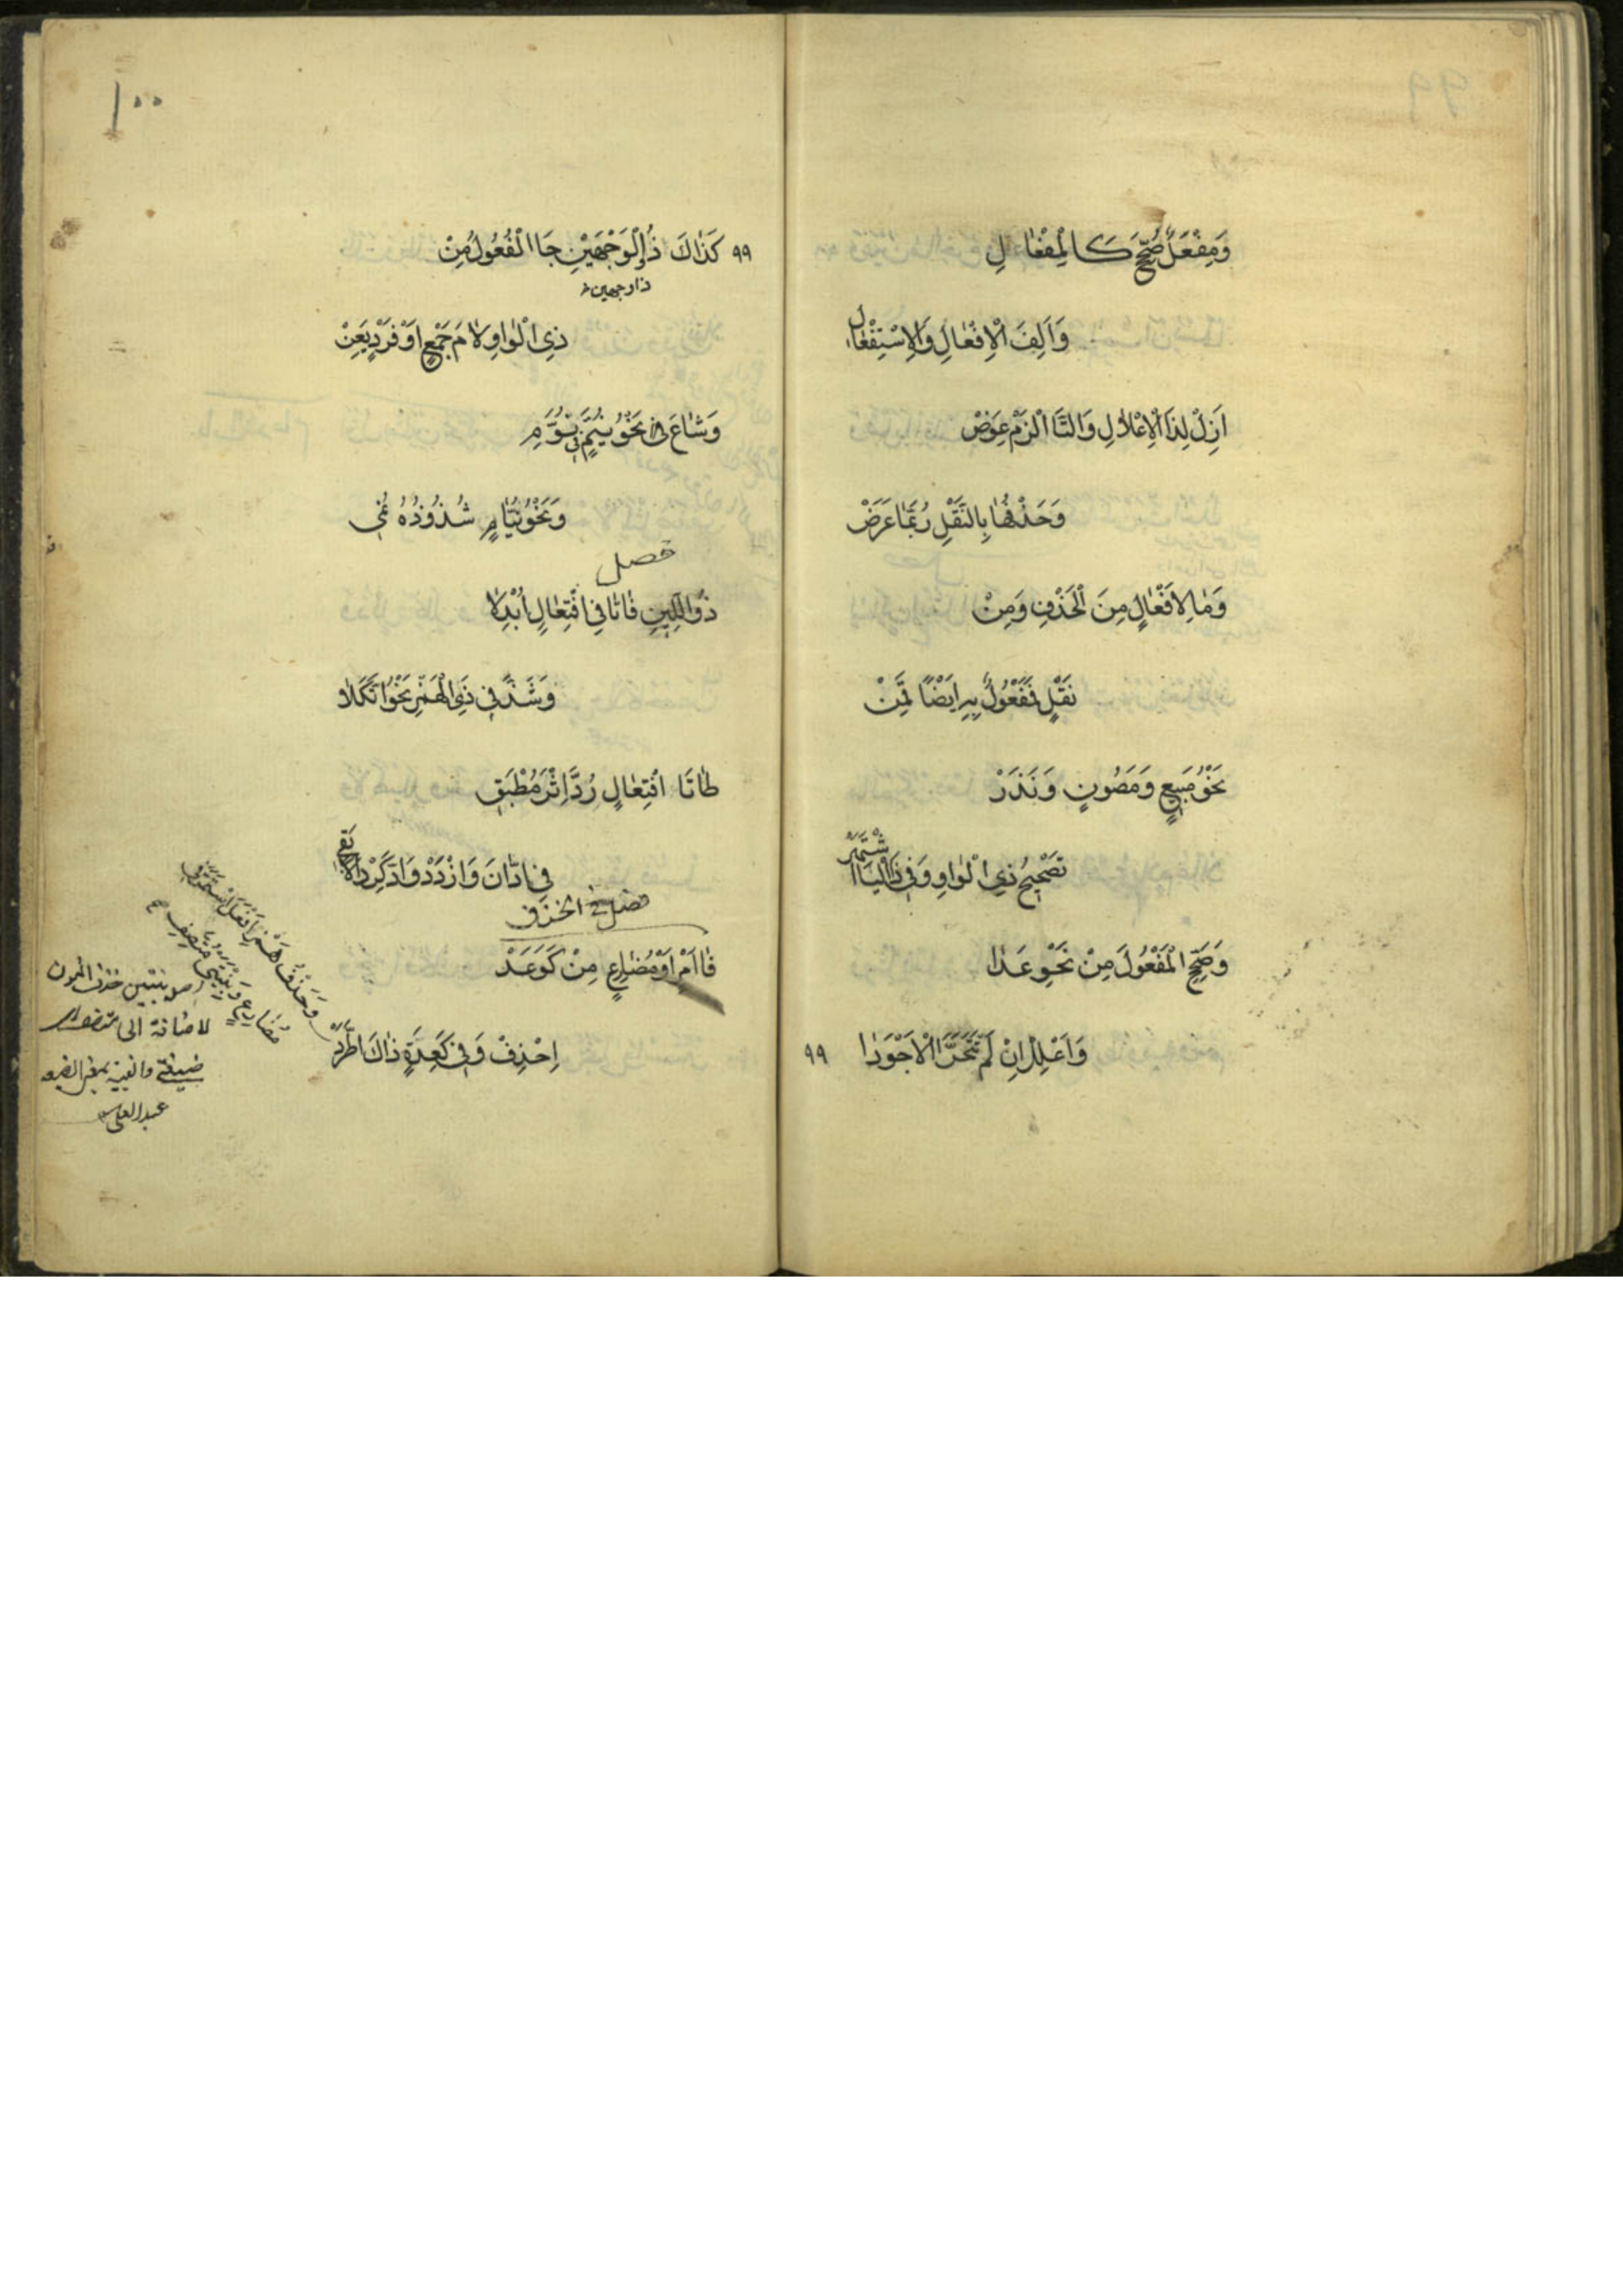 ٩٩
وَمِفْعَلٌ صُحِّحَ كَالْمِفْعَالِ
وَاَلِفَ الْاِفْعَالِ وَالْاِسْتِفْعَالِ
اَزِلْ لِذَا الْاِعْلَالِ وَالتَّا الْزَمْ عِوَضْ
وَحَذْفُهَا بِالنَّقْلِ رُبَّمَا عَرَضْ
وَمَا لِاِفْعَالٍ مِنَ الْحَذْفِ وَمِنْ
نَقْلٍ فَمَفْعُولٌ بِهِ اَيْضًا قَمِنْ
نَحْوُ مَبِيعٍ وَمَصُونٍ وَنَدَرْ
تَصْحِيحُ ذِي الْوَاوِ وَفِي ذِي الْيَا اشْتَهَرْ
وَصَحِّحِ الْمَفْعُولَ مِنْ نَحْوِ عَدَا
وَاَعْلِلْ اِنْ لَمْ تَتَحَرَّ الْاَجْوَدَا
٩٩
١٠٠
٩٩ كَذَاكَ ذُو الْوَجْهَيْنِ جَا الْفُعُولُ مِنْ
ذا وجهين خ
ذِي الْوَاوِ لَامَ جَمْعٍ اَوْ فَرْدٍ يَعِنْ
وَشَاعَ فِي نَحْوُ نُيَّمٌ فِي نُوَّمِ
وَنَحْوُ نُيَّامٍ شُذُوذُهُ نُمِي
فصل
ذُو اللِّينِ فَا تَا فِي افْتِعَالٍ اُبْدِلَا
وَشَذَّ فِي ذِي الْهَمْزِ نَحْوُ ائْتَكَلَا
طَا تَا افْتِعَالٍ رُدَّ اِثْرَ مُطْبَقِ
فِي ادَّانَ وَازْدَدْ وَادَّكِرْ دَالًا بَقِي
فصل فى الحذف
فَا اَمْرٍ اَوْ مُضَارِعٍ مِنْ كَوَعَدْ
اِحْذِفْ وَفِي كَعِدَةٍ ذَاكَ اطَّرَدْ
وَحَذْفُ هَمْزِ اَفْعَلَ اسْتَمَرَّ فِي
مُضَارِعٍ وَبِنْيَتَيْ مُتَّصِفِ